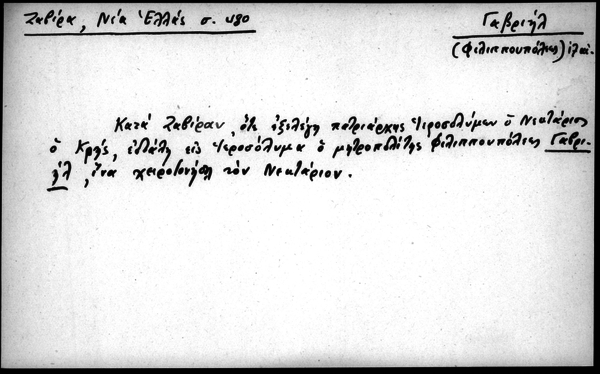 Ζαβίρα, Νέα Ἑλλάς σ. 480
Γαβριήλ
(Φιλιππουπόλεως)
Κατά Ζαβίραν, ὅτε ἐξελέγη πατριάρχης Ἱεροσολύμων ὁ Νεκτάριος
ὁ Κρής, ἐστάλη εἰς Ἱεροσόλυμα ὁ μητροπολίτης Φιλιππουπόλεως Γαβρι-
ήλ, ἵνα χειροτονήσῃ τὸν Νεκτάριον.